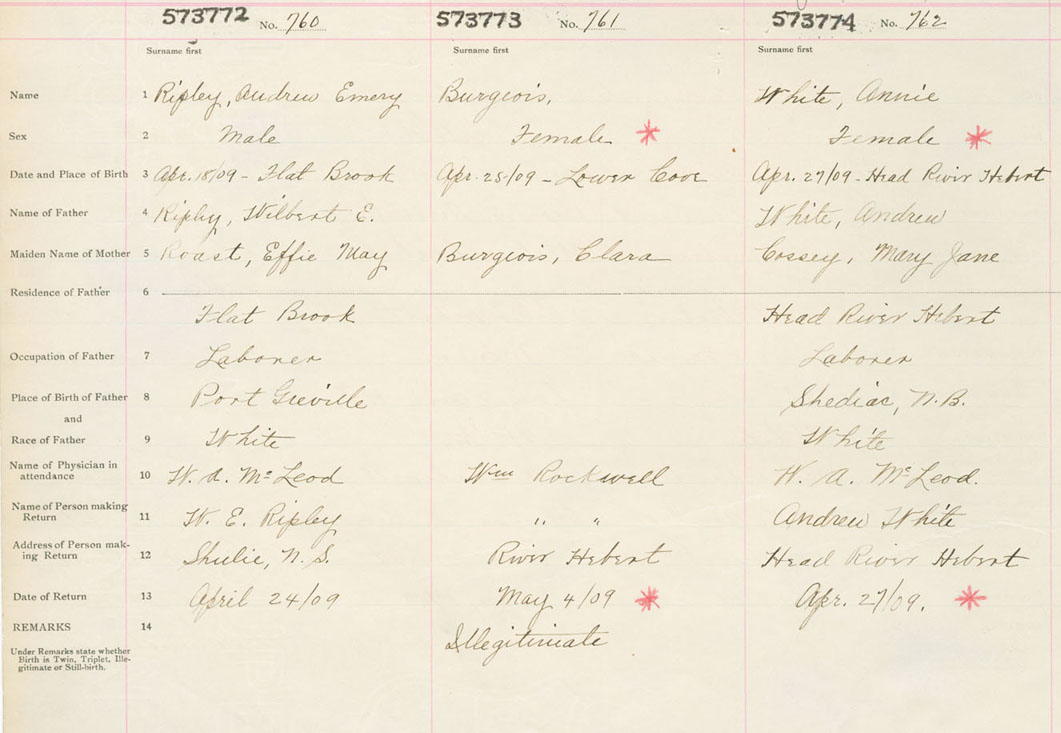 573772 No. 760 573773 No. 761 573774 No. 762
Surname first Surname first Surname first
Name 1 Ripley, Andrew Emery Burgeois, White, Annie
Sex 2 Male Female Female
Date and Place of Birth 3 Apr. 18/09 - Flat Brook Apr. 25/09 - Lower Cove Apr. 27/09 - Head River Hebert
Name of Father 4 Ripley, Wilbert E. White, Andrew
Maiden Name of Mother 5 Roast, Effie May Burgeois, Clara Cossey, Mary Jane
Residence of Father 6
Flat Brook Head River Hebert
Occupation of Father 7 Laborer Laborer
Place of Birth of Father 8 Port Greville Shediac, N.B.
and
Race of Father 9 White White
Name of Physician in
attendance 10 W. A. McLeod Wm Rockwell W. A. McLeod.
Name of Person making
Return 11 W. E. Ripley " " Andrew White
Address of Person mak-
ing Return 12 Shulie, N.S. River Hebert Head River Hebert
Date of Return 13 April 24/09 May 4/09 Apr. 27/09.
REMARKS 14 Illegitimate
Under Remarks state whether
Birth is Twin, Triplet, Ille-
gitimate or Still-birth.